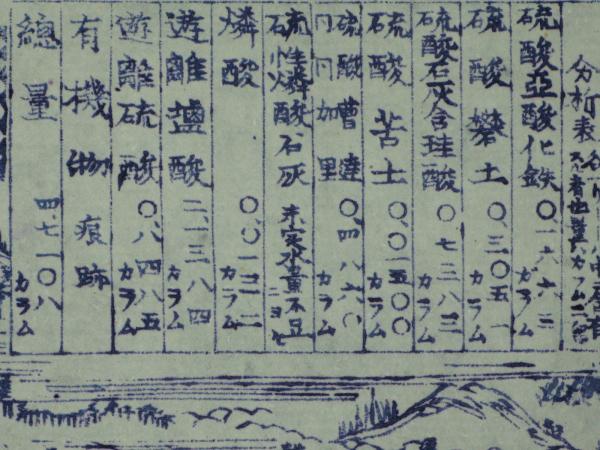 分析表
硫酸亞酸化鉄 〇.一六六三 ガラム
硫酸礬土 〇.三〇五一 ガラム
硫酸石灰含珪酸 〇.七三八三 ガラム
硫酸苦土 〇.〇一五〇 ガラム
硫酸曹達
加里 〇.四八六〇 ガラム
性燐酸石灰
燐酸 〇.〇一三二 ガラム
遊離鹽酸 二.一三八四 ガラム
遊離硫酸 〇.八四八五 ガラム
有機物痕跡
總量 四.七一〇八 ガラム